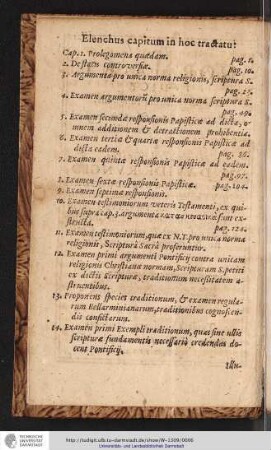 Elenchus capitum in hoc tractatu:
Cap. 1. Prolegomena quædam. pag. 1.
2. De statu controversiæ. pag. 10.
3. Argumenta pro unica norma religionis, scriptura S.
pag. 25.
4. Examen argumentorũ pro unica norma scriptura S.
pag. 49.
5. Examen secundæ responsionis Papisticæ ad dicta, o-
mnem additionem & detractionem prohibentia.
6. Examen tertiæ & quartæ responsionis Papisticæ ad
dicta eadem. pag. 86.
7. Examen quintæ responsionis Papisticæ ad eadem.
pag. 97.
8. Examen sextæ responsionis Papisticæ. pag. 104.
9. Examen septimæ responsionis.
10. Examen testimoniorum veteris Testamenti, ex qui-
bus supra cap. 3. argumenta sunt ex-
structa. pag. 124.
11. Examen testimoniorum, quæ ex N.T. pro unica norma
religionis, Scriptura Sacra proferuntur.
12. Examen primi argumenti Pontificij contra unicam
religionis Christianæ normam, Scripturam S. petiti
ex dictis Scripturæ, traditionum necessitatem a-
struentibus.
13. Proponens species traditionum, & examen regula-
rum Bellarminianarum, traditionibus cognoscen-
dis confictarum.
14. Examen primi Exempli traditionum, quas sine ullis
scripturæ fundamentis necessariò credendas do-
cent Pontificij.
TECHNISCHE
UNIVERSITÄT
DARMSTADT
http://tudigit.ulb.tu-darmstadt.de/show/W-1509/0098
Universitäts- und Landesbibliothek Darmstadt